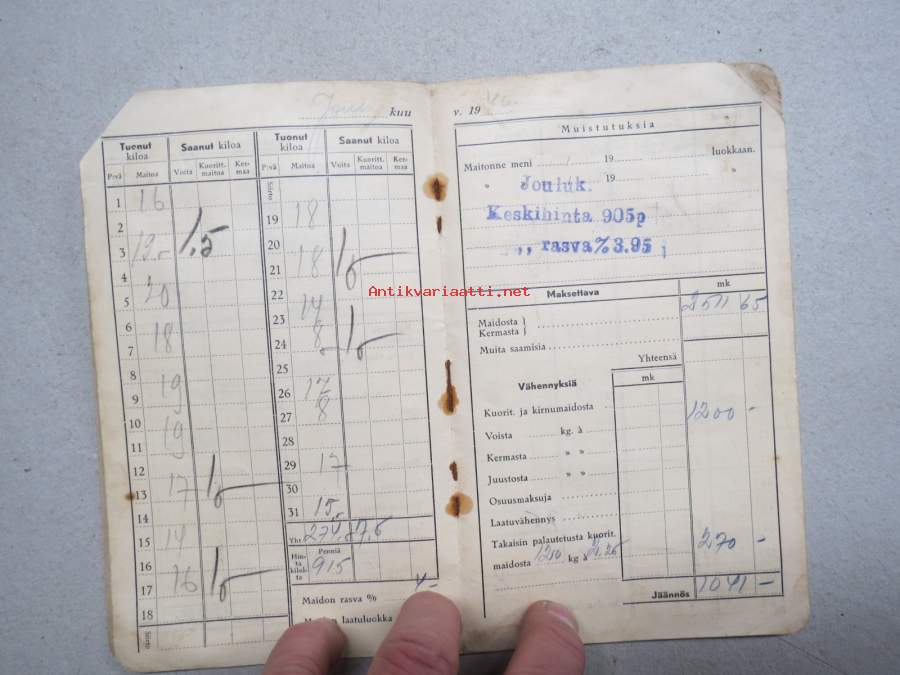 Joulu kuu
Tuonut kiloa Saanut kiloa Tuonut kiloa Saanut kiloa
P:vä Maitoa Voita Kuoritt. maitoa Kermaa P:vä Maitoa Voita Kuoritt. maitoa Kermaa
1 16 Siirto
2 19 18
3 13.- 1,5 20
4 21 18
5 20 22
6 23 14
7 18 24 8
8 25
9 19 26 17
10 27 8
11 19 28
12 29 17
13 17 30
14 31 15
15 14 Yht.
16 Hinta kilolta Penniä 915
17 16
18 Maidon rasva %
Siirto
v. 19
Muistutuksia
Maitonne meni 19 luokkaan.
" 19
Jouluk.
Keskihinta 905p
,, rasva% 3.95
Antikvariaatti.net
mk
Maksettava
Maidosta } 2511 65
Kermasta }
Muita saamisia
Yhteensä
Vähennyksiä mk
Kuorit. ja kirnumaidosta 1200 -
Voista kg. à
Kermasta " "
Juustosta " "
Osuusmaksuja
Laatuvähennys
Takaisin palautetusta kuorit.
maidosta 120 kg à 2.25 270 -
Jäännös 1041 -